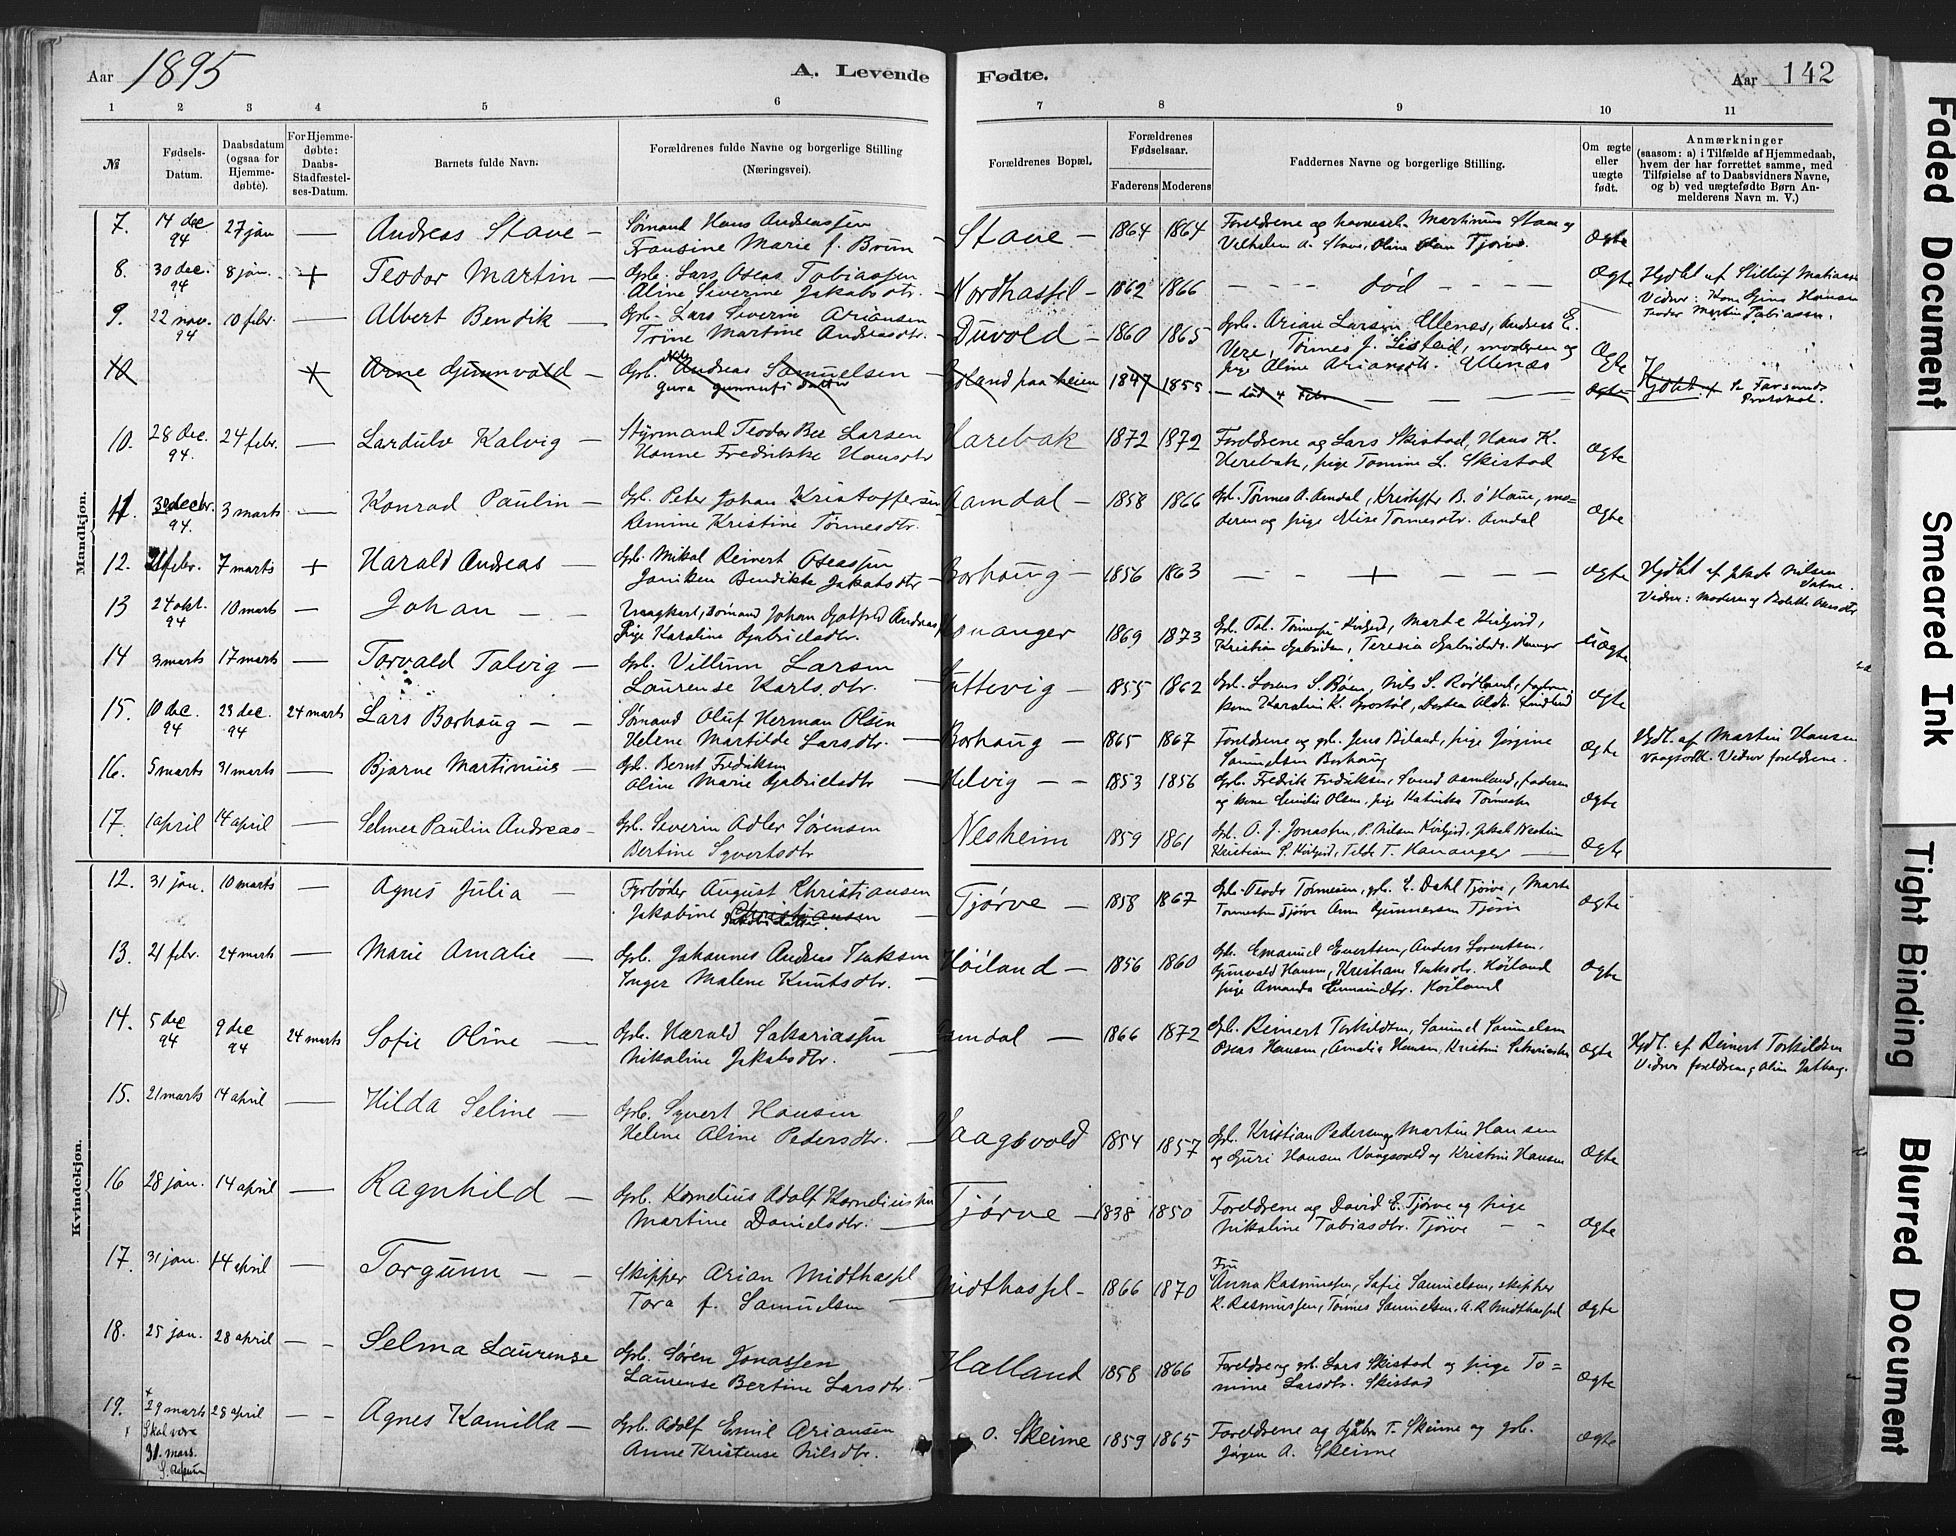 Aar 1895
A. Levende Fødte.
Aar 142
1 2 3 4 5 6 7 8 9 10 11
№
Fødsels-Datum.
Daabsdatum (ogsaa for Hjemme-døbte).
For Hjemme-døbte: Daabs-Stadfæstel-ses-Datum.
Barnets fulde Navn.
Forældrenes fulde Navne og borgerlige Stilling (Næringsvei).
Forældrenes Bopæl.
Forældrenes Fødselsaar.
Faderens Moderens
Faddernes Navne og borgerlige Stilling.
Om ægte eller uægte født.
Anmærkninger
(saasom: a) i Tilfælde af Hjemmedaab, hvem der har forrettet samme, med Tilføielse af to Daabsvidners Navne, og b) ved uægtefødte Børn An-melderens Navn m. V.)
Mandkjøn.
7. 14 dec 94 27 jan — Andreas Stave — Sømand Hans Andreassen
Fransine Marie f. Brun — Stave — 1864 1864 Foreldrene og Martinius Stave og
Vilhelm A. Stave, Tjørve. Ægte
8. 30 dec. 94 8 jan. + Teodor Martin — Gbr. Lars Oseas Tobiassen
Aline Severine Jakobsdtr. — Nordhassel — 1862 1866 — død — Ægte
Vidner: Kone Hansen
Teodor Martin Tobiassen.
9. 22 nov. 94 10 febr. — Albert Bendik — Gbr. Lars Severin Ariansen
Trine Martine Andreasdtr. — Duvold — 1860 1865 Gbr. Arian Larsen Ellenæs, Andreas E.
Vere, Tørnes J. moderen og
pige Aline Ariansdtr. Ellenæs Ægte
10 + Arne Gunnvald — Gbr. Andreas Samuelsen —
paa heien 1847 1855 — død 4 Febr — Ægte Hjdbt. Farsunds
Protokol.
10. 28 dec. 94. 24 febr. — Lardulv Kalvig — Styrmand Teodor Ber Larsen
Hanne Fredrikke Hansdtr Harebak 1872 1872 Foreldrene og Lars Skistad, Hans K.
Herebak, pige Tomine L. Skistad Ægte
11. 30 decbr. 94. 3 marts — Konrad Paulin — Gbr. Peter Johan Kristoffersen
Remine Kristine Tørnesdtr. Aamdal — 1858 1866 Gbr. Tørnes A. Amdal, Kristoffer B. ø Haue, mo-
deren og pige Elise Tørnesdtr. Amdal Ægte
12. febr. 7 marts + Harald Andreas — Gbr. Mikal Reinert Oseassen
Joniken Bendikte Jakobsdtr — Borhaug — 1856 1863 — + — Ægte Hjdbt af Jakob Nilsen
Vidner: moderen og Bolette
13 24 okt. 94 10 marts — Johan — Ungkarl, Sømand Johan Gotfred Andreas
Pige Karoline Gabrielsdtr. Hananger 1869 1873 Gbr. Tørnesen Kirkjord, Marte Kirkjord,
Kristian Gabrielsen, Teresia Gabrielsdtr. Hananger Uægte
14 3 marts 17 marts — Torvald Talvig — Gbr. Villum Larsen
Laurense Karlsdtr. — 1855 1862 Ægte
15. 10 dec. 94 23 dec. 94 24 marts Lars Borhaug — Sømand Oluf Herman Olsen
Helene Martilde Larsdtr. — Borhaug — 1865 1867 Foreldrene og gbr. Jens pige Jørgine
Samuelsen Borhaug Ægte Hjdt. af Martin Hansen
Vaagsvold. Vidner foreldrene.
16. 5 marts 31 marts — Bjarne Martinius — Gbr. Bernt Fredriksen
Oline Marie Gabrielsdtr — Helvig — 1853 1856 Gbr. Fredrik Fredriksen, Svend Aamland, faderen
og kone Emilie Olsen, pige Katinka Ægte
17. 1 april 14 april — Selmer Paulin Andreas — Gbr. Severin Adler Sørensen
Bertine Syvertsdtr Nesheim 1859 1861 Gbr. O. J. Jonassen, P. Nilsen Kirkjord, Jakob Nesheim
Kristian S. Kirkjord, Tilde T. Hananger — Ægte
Kvindekjøn.
12. 31 jan. 10 marts — Agnes Julia — Fyrbøder August Christiansen
Jakobine Christiansen — Tjørve — 1858 1867 Gbr. Teodor Tørnesen, gbr. E. Dahl Tjørve, Marte
Tørnesen Tjørve Ann Gunnersen Tjørve Ægte
13. 21 febr. 24 marts — Marie Amalie — Gbr. Johannes Andreas
Inger Malene Knutsdtr. — Høiland — 1856 1860 Gbr. Emanuel Evertsen, Anders Lorentsen,
Gunvald Hansen, Kristiane Høiland
pige Amanda Høiland Ægte
14. 5 dec 94 9 dec 94 24 marts Sofie Oline — Gbr. Harald Sakariassen
Nikoline Jakobsdtr. — Amdal — 1866 1872 Gbr. Reinert Torkildsen, Samuel Samuelsen
Oseas Hansen, Amalia Hansen, Kristine Sakariasdtr Ægte Hjdt. af Reinert Torkildsen
Vidner foreldrene og Aline
15. 21 marts 14 april — Hilda Seline — Gbr. Syvert Hansen
Helene Aline Pedersdtr. — Vaagsvold 1854 1857 Gbr. Kristian Pedersen, Martin Hansen
og Guri Hansen Vaagsvold og Kristine Hansen Ægte
16 28 jan. 14 april — Ragnhild — Gbr. Kornelius Adolf Korneliussen
Martine Danielsdtr. — Tjørve — 1838 1850 Foreldrene og David E. Tjørve og pige
Nikoline Tobiasdtr. Tjørve — Ægte
17. 31 jan. 14 april — Torgunn — Skipper Arian Midthassel
Tora f. Samuelsen — Midthassel — 1866 1870 Fru
Anna Rasmussen, Sofie Samuelsen, skipper
R. Rasmussen, Tørnes Samuelsen, A. R. Midthassel Ægte
18. 25 jan. 28 april — Selma Laurense Gbr. Søren Jonassen
Laurense Bertine Larsdtr. — Halland 1858 1866 Foreldre og gbr. Lars Skistad og pige To=
mine Larsdtr. Skistad Ægte
19. + 29 marts 28 april — Agnes Kamilla — Gbr. Adolf Emil Ariansen
x Skal være
31. mars.
Anne Kristense Nilsdtr. ø. Skeime 1859 1865 Foreldrene og T. Skeime og gbr.
Jørgen A. Skeime Ægte
Faded Document
Smeared Ink
Tight Binding
Blurred Document